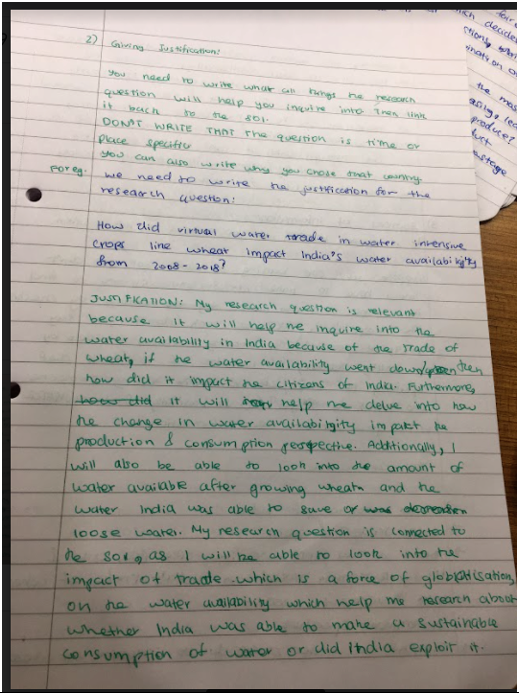 2) Giving Justification:
You need to write what all things the research
question will help you inquire into then link
it back to the SOI.
DON'T WRITE THAT The question is time or
place specific
You can also write why you chose that country
For eg: we need to write the justification for the
research question:
How did virtual water trade in water intensive
crops like wheat impact India's water availability
from 2008-2018?
JUSTIFICATION: My research question is relevant
because it will help me inquire into the
water availability in India because of the trade of
wheat, if the water availability went down then
how did it impact the citizens of India. Furthermore,
how did it will help me delve into how
the change in water availability impact the
production & consumption perspective. Additionally, I
will also be able to look into the amount of
water available after growing wheat and the
water India was able to save or was
loose water. My research question is connected to
the SOI, as I will be able to look into the
impact of trade which is a force of globalisation,
on the water availability which help me research about
whether India was able to make a sustainable
consumption of water or did india exploit it.
decides
the mos
produce?